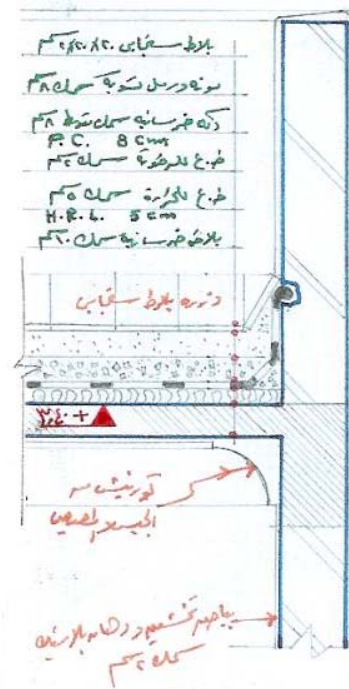 بلاط سنجابى ٢٠×٢٠×٢ سم
مونه ورمل تسوية سمك ٨ سم
دكه خرسانيه سمك متوسط ٨ سم
P.C. 8 cm
ط.ع للرطوبة سمك ٢ سم
ط.ع للحرارة سمك ٥ سم
H.R.L. 5 cm
بلاطه خرسانيه سمك ١٠ سم
وزره بلاط سنجابى
+ ٣,٤٠
كورنيش من
الجبس المصيص
بياض تخشين ودهان بلاستيك
سمك ٢ سم